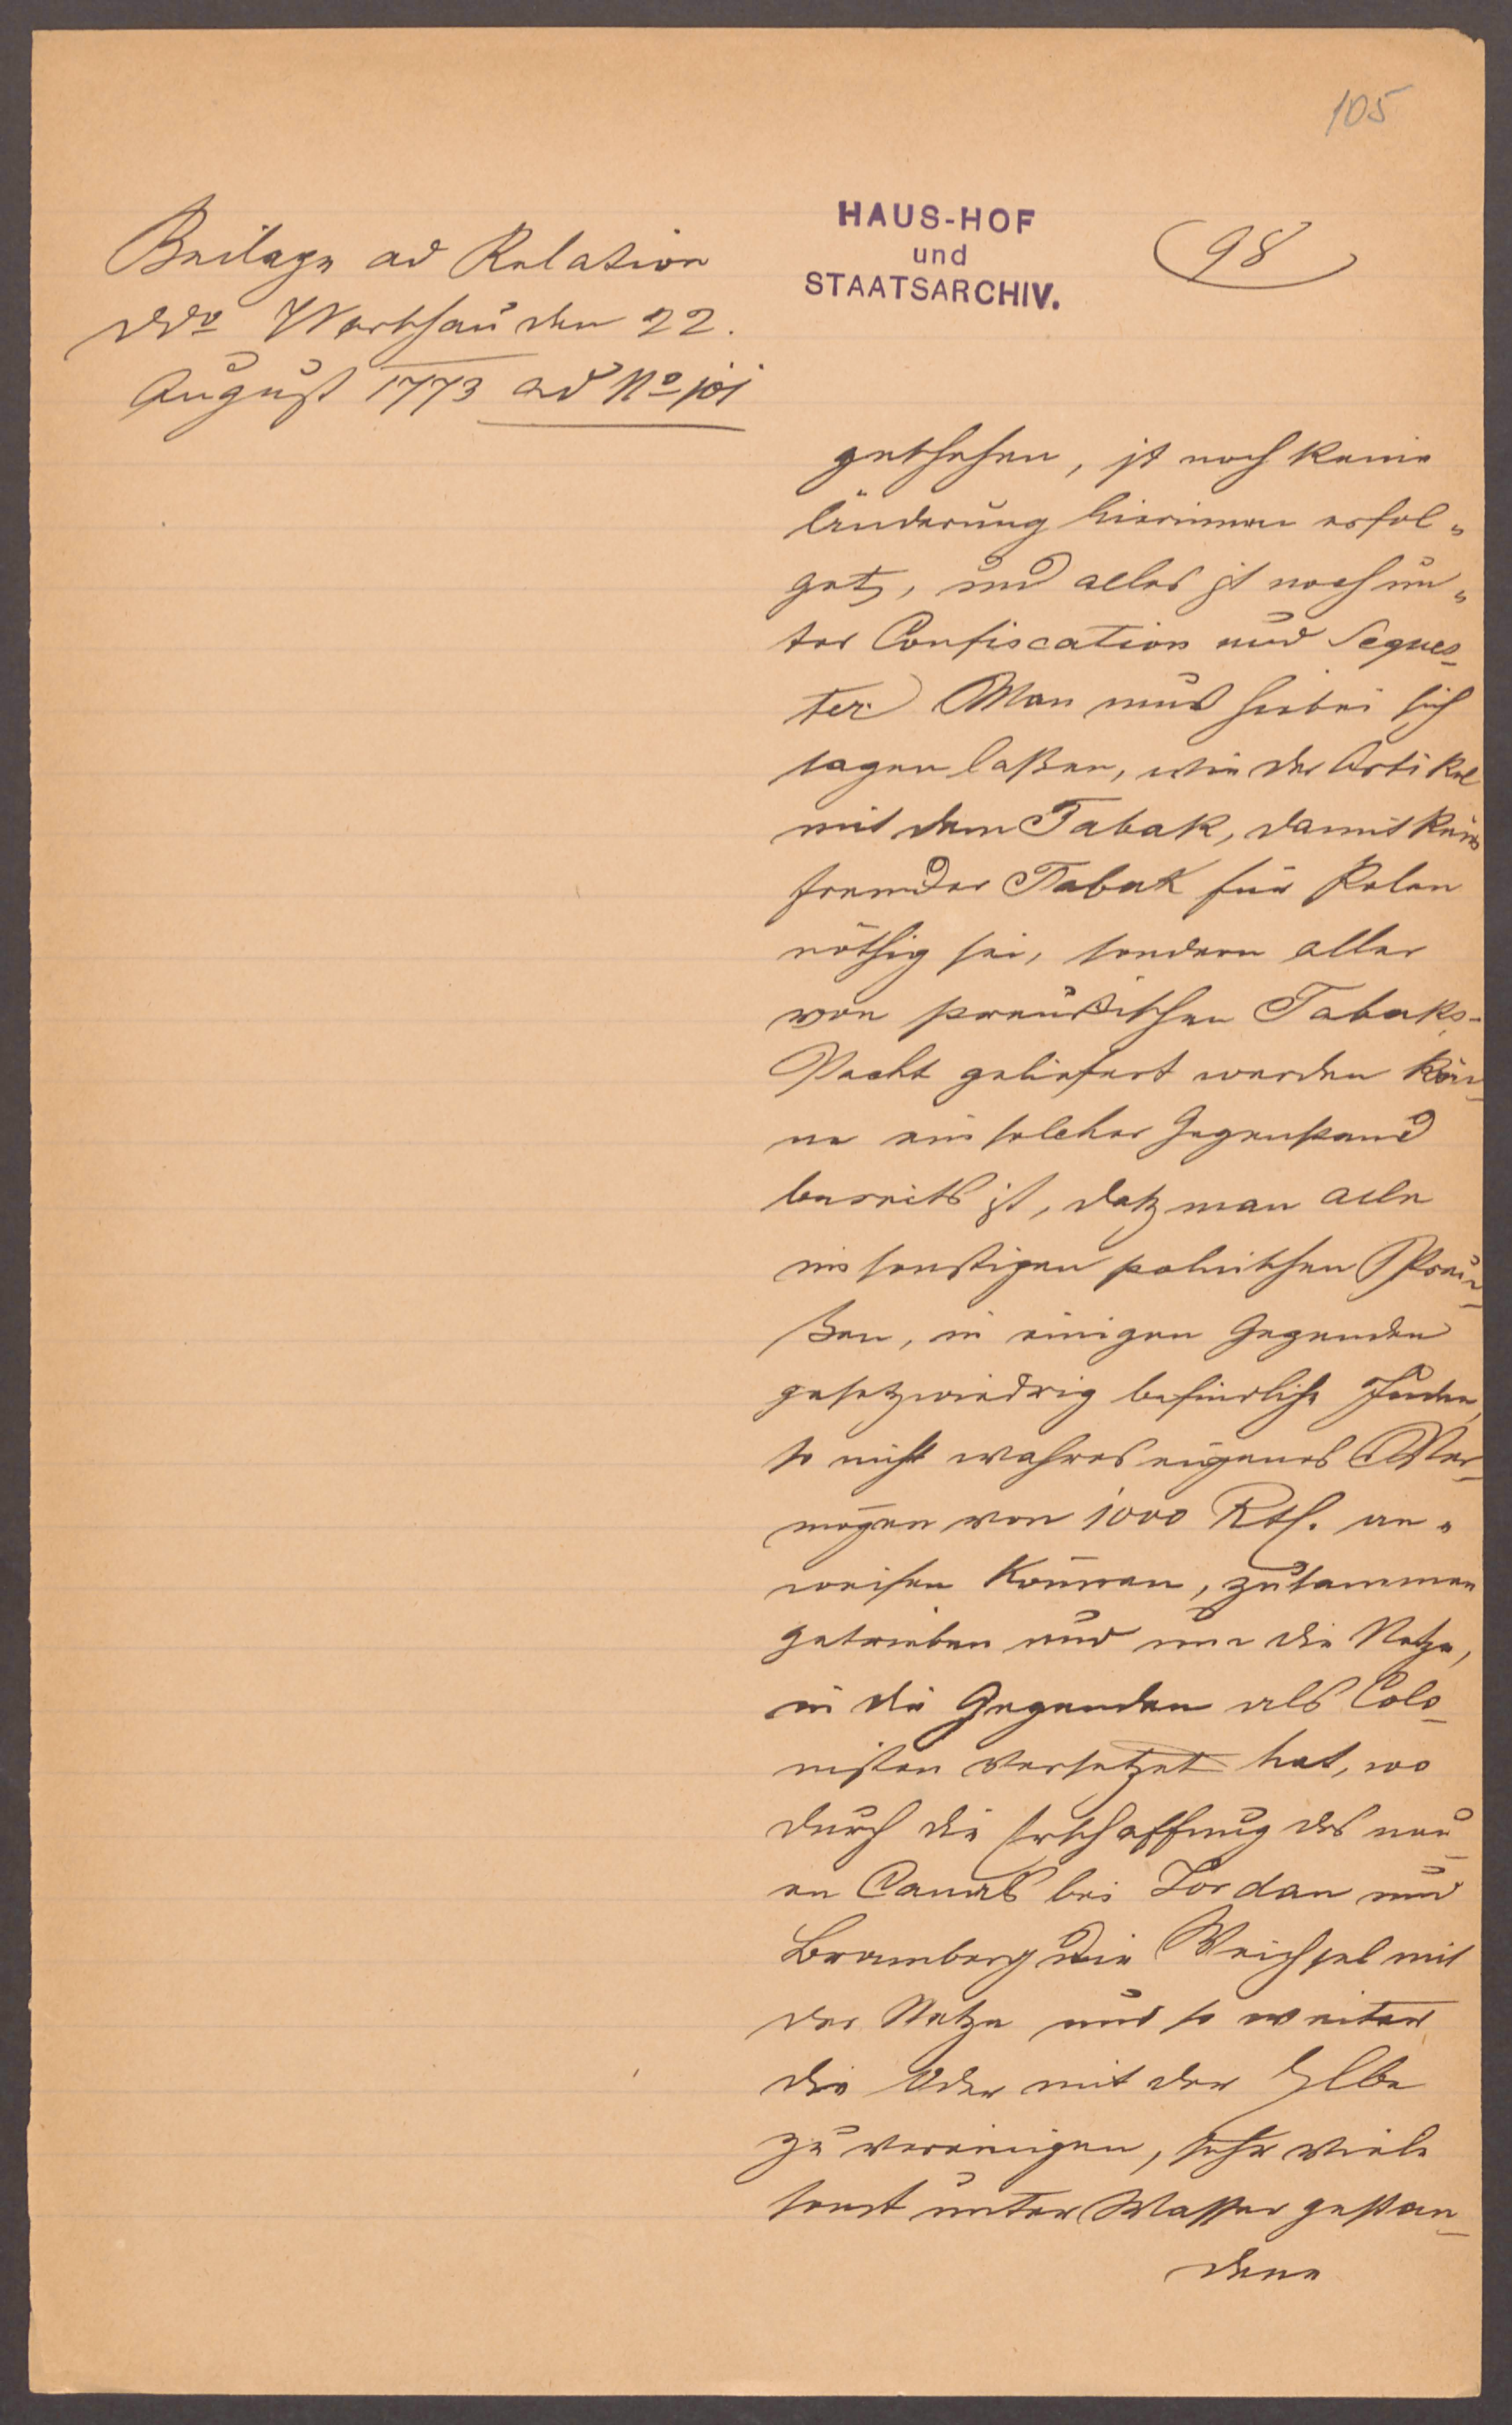 105
HAUS-HOF
und
STAATSARCHIV.
(98)
Beilage ad Relation
ddo Warschau den 22.
August 1773 ad No 101
geschehen, ist noch keine
Änderung hierinnen erfol„
get, und alles ist noch un„
ter Confiscation und Seques-
ter. Man muß hiebei sich
sagen laßen, wie der Artikel
mit dem Tabak, damit kein
fremder Tabak für Polen
nöthig sei, sondern aller
von preußischen Tabaks-
Pacht geliefert werden kön-
ne ein solcher Gegenstand
bereits ist, daß man alle
im sonstigen polnischen Preu-
ßen, in einigen Gegenden
gesetzwiedrig befindliche Juden,
so nicht wahres eigenes Ver-
mögen von 1000 Rth. an„
weisen können, zusammen
getrieben und an die Netze,
in die Gegenden als Colo-
nisten versetzet hat, wo
durch die Erschaffung des neu-
en Canals bei Fordan und
Bromberg die Weichsel mit
der Netze und so weiter
die Oder mit der Elbe
zu vereinigen, sehr viele
sonst unter Wasser gestan-
dene